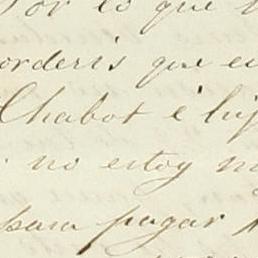 Por lo que
orderis que
Chabot é hij
no estoy
para pagar